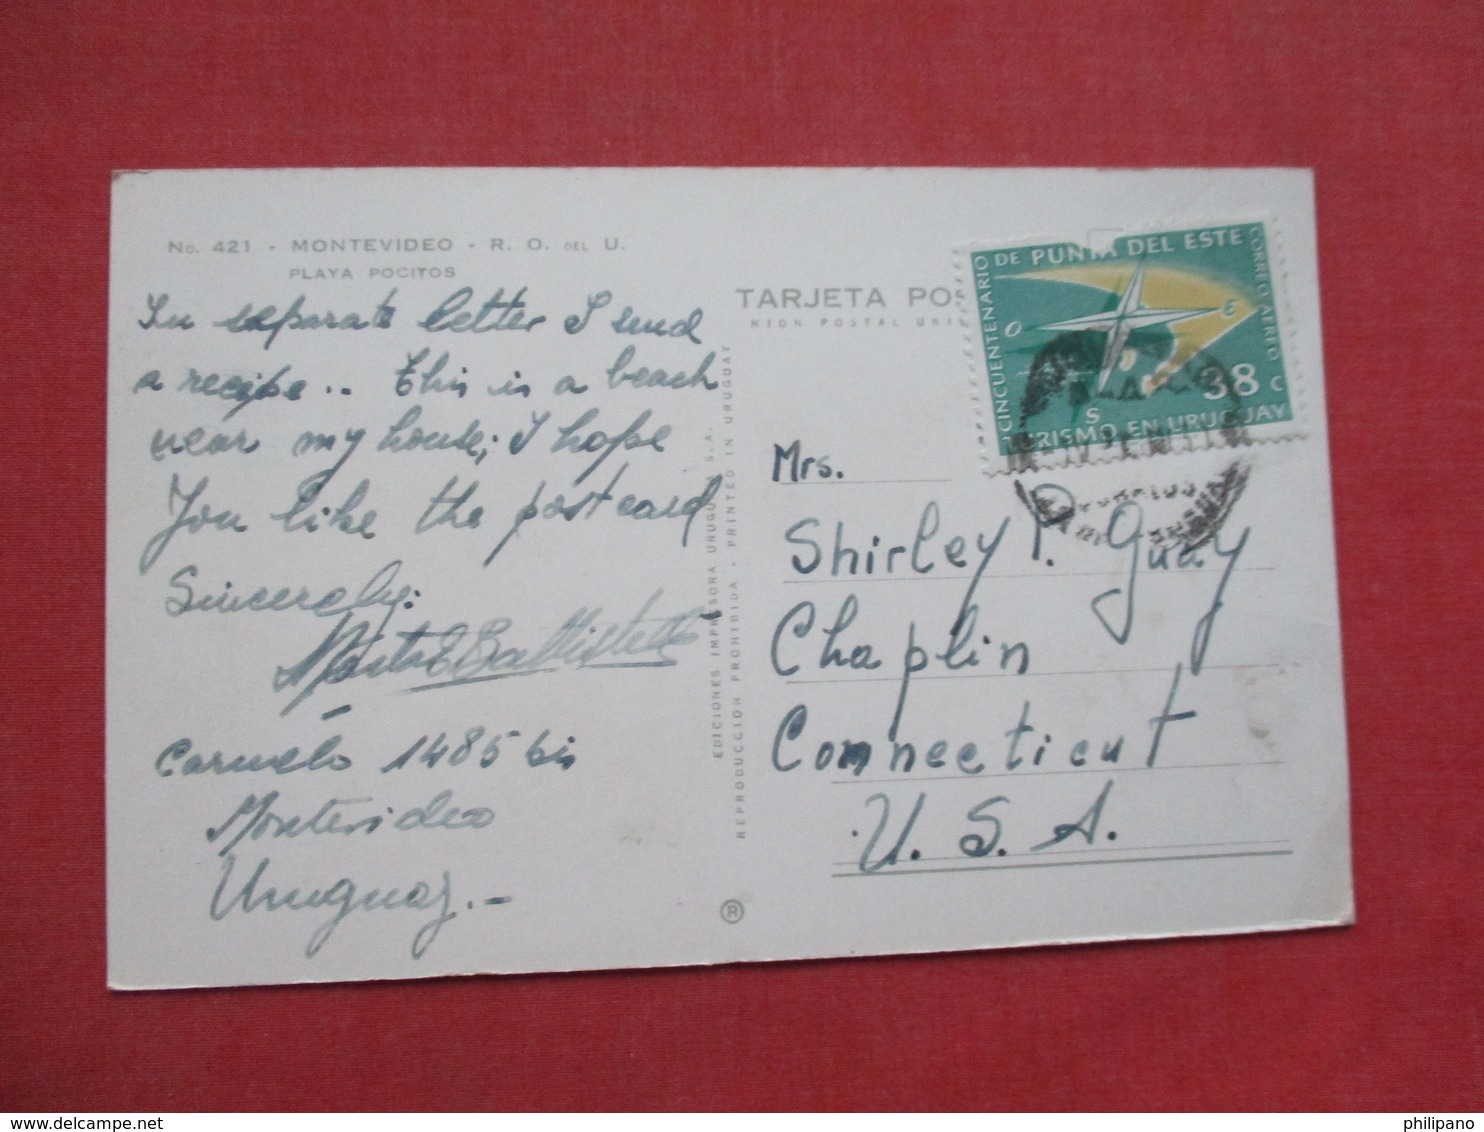 No. 421 - MONTEVIDEO - R. O. DEL U.
PLAYA POCITOS
In separate letter I send
a recipe.. this is a beach
near my house; I hope
You like the postcard
Sincerely:
Battistetti
Carmelo 1485 bis
Montevideo
Uruguay.-
EDICIONES IMPRESORA URUGUAYA S. A.
REPRODUCCION PROHIBIDA - PRINTED IN URUGUAY
R
TARJETA POS
NION POSTAL UNI
CINCUENTENARIO DE PUNTA DEL ESTE
CORREO AEREO
O
E
S
38 C
TURISMO EN URUGUAY
CORREOS
Mrs.
Shirley P. Guay
Chaplin
Connecticut
U. S. A.
delcampe.net
philipano